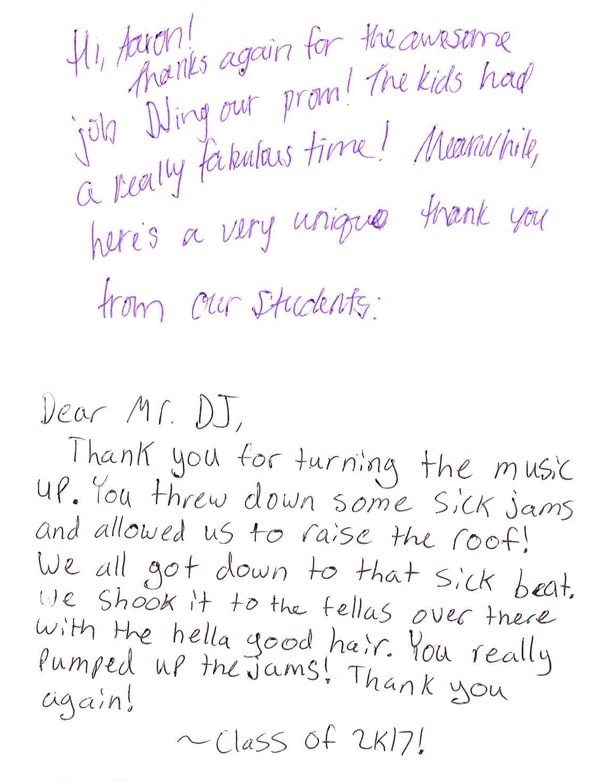 Hi, Aaron!
Thanks again for the awesome
job DJing our prom! The kids had
a really fabulous time! Meanwhile,
here's a very unique thank you
from our students:
Dear Mr. DJ,
Thank you for turning the music
up. You threw down some sick jams
and allowed us to raise the roof!
We all got down to that sick beat.
We shook it to the fellas over there
with the hella good hair. You really
pumped up the jams! Thank you
again!
~Class of 2K17!